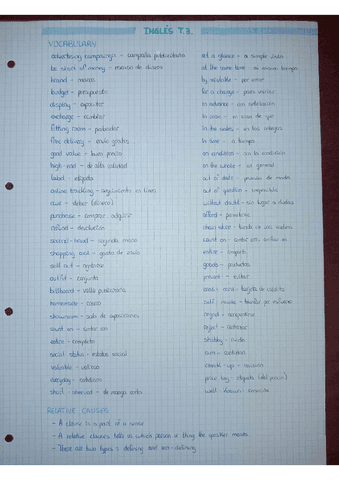 INGLÉS T.3.
VOCABULARY
advertising campaign - campaña publicitaria
be short of money - escaso de dinero
brand - marca
budget - presupuesto
display - expositor
exchange - cambiar
fitting room - probador
free delivery - envío gratis
good value - buen precio
high-end - de alta calidad
label - etiqueta
online tracking - seguimiento en línea
owe - deber (dinero)
purchase - comprar, adquirir
refund - devolución
second-hand - segunda mano
shopping cart
sell out - agotar
outfit - conjunto
billboard - valla publicitaria
homemade - casero
showroom - sala de exposiciones
count on - contar con
entire - completo
social status - estatus social
valuable - valioso
everyday - cotidiano
short-sleeved - de manga corta
at a glance - a simple vista
at the same time - al mismo tiempo
by mistake - por error
for a change - para variar
in advance - con antelación
in case - en caso de que
in the sales - en las rebajas
in time - a tiempo
on condition - con la condición
on the whole - en general
out of date - pasado de moda
out of question - imposible
without doubt - sin lugar a dudas
afford - permitirse
chain store - tienda de una cadena
count on - contar con, confiar en
entire - completo
goods - productos
prevent - evitar
credit card - tarjeta de crédito
regret - arrepentirse
reject - rechazar
shabby
price tag - etiqueta (del precio)
well-known - conocido
RELATIVE CLAUSES
- A clause is a part of a sentence
- A relative clauses tells us which person or thing the speaker means.
- There are two types: defining and non-defining